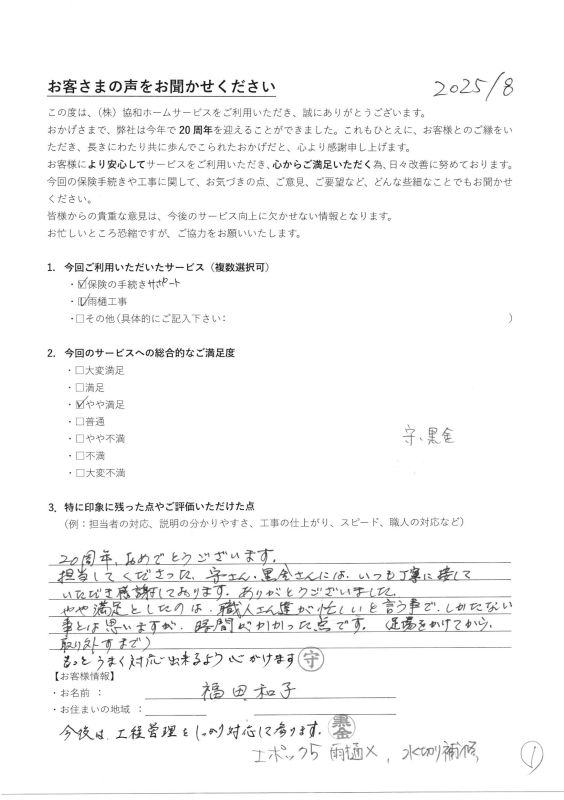 お客さまの声をお聞かせください
2025/8
この度は、（株）協和ホームサービスをご利用いただき、誠にありがとうございます。
おかげさまで、弊社は今年で20周年を迎えることができました。これもひとえに、お客様とのご縁をい
ただき、長きにわたり共に歩んでこられたおかげだと、心より感謝申し上げます。
お客様により安心してサービスをご利用いただき、心からご満足いただく為、日々改善に努めております。
今回の保険手続きや工事に関して、お気づきの点、ご意見、ご要望など、どんな些細なことでもお聞かせ
ください。
皆様からの貴重な意見は、今後のサービス向上に欠かせない情報となります。
お忙しいところ恐縮ですが、ご協力をお願いいたします。
1. 今回ご利用いただいたサービス（複数選択可）
・☑保険の手続きサポート
・☑雨樋工事
・□その他(具体的にご記入下さい： ）
2. 今回のサービスへの総合的なご満足度
・□大変満足
・□満足
・☑やや満足
・□普通
・□やや不満
・□不満
・□大変不満
守、黒金
3. 特に印象に残った点やご評価いただけた点
（例：担当者の対応、説明の分かりやすさ、工事の仕上がり、スピード、職人の対応など）
20周年、おめでとうございます。
担当してくださった、守さん・黒金さんには、いつも丁寧に接して
いただき感謝しております。ありがとうございました。
やや満足としたのは、職人さん達が忙しいと言う事で、しかたない
事とは思いますが、時間がかかった点です。（足場をかけてから、
取り外すまで）
もっとうまく対応出来るよう心がけます 守
【お客様情報】
・お名前 ： 福田和子
・お住まいの地域 ：
今後は、工程管理をしっかり対応して参ります。 黒金
エポック5 雨樋×、水切り補修
1